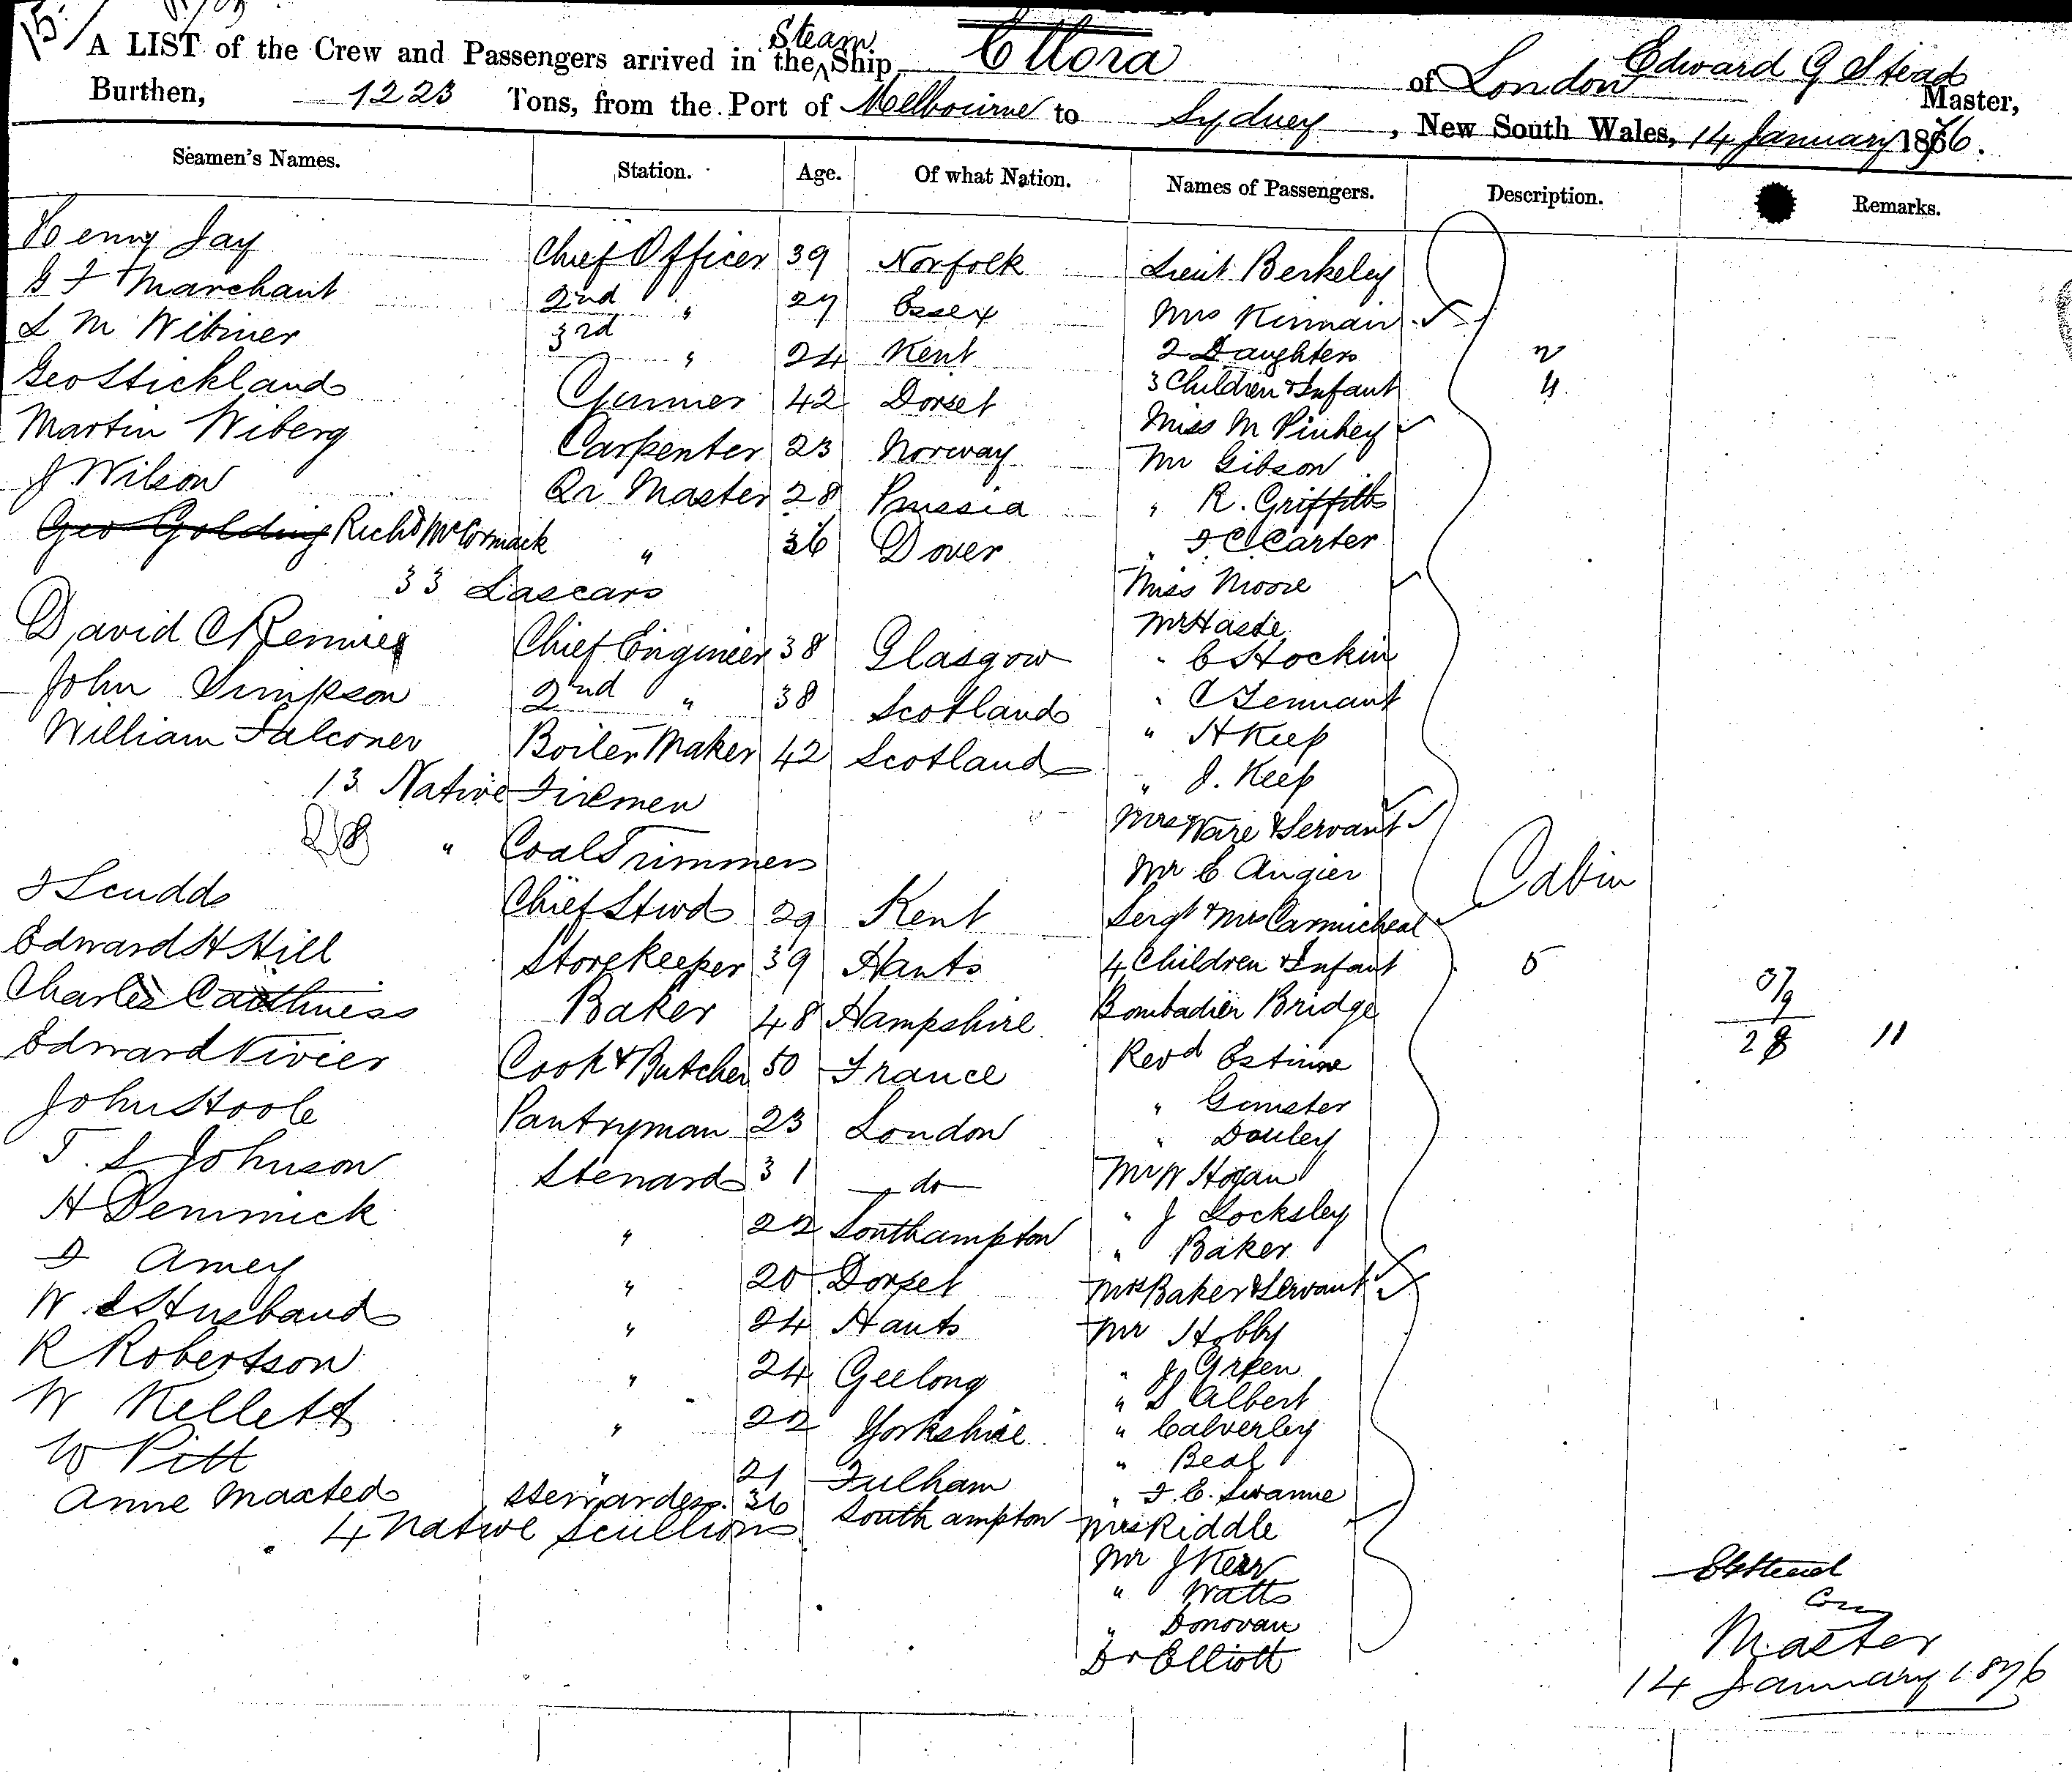 15.
A LIST of the Crew and Passengers arrived in the Steam Ship Ellora of London Edward G Stead Master,
Burthen, 1223 Tons, from the Port of Melbourne to Sydney, New South Wales, 14 January 1876.
Seamen's Names. Station. Age. Of what Nation. Names of Passengers. Description. Remarks.
Henry Jay Chief Officer 39 Norfolk Lieut Berkeley
G F Marchant 2nd " 27 Essex Mrs Kirman
L M Wibmer 3rd " 24 Kent 2 Daughters 2
Geo Stickland Gunner 42 Dorset 3 Children & Infant 4
Martin Wiberg Carpenter 23 Norway Miss M Pinhey
J Wilson Qr Master 28 Prussia Mr Gibson
Geo Golding Richd McCormack " 36 Dover " R. Griffiths
" F C Carter
33 Lascars Miss Moore
David C Rennie Chief Engineer 38 Glasgow Mr Haste
" C Stockin
John Simpson 2nd " 38 Scotland " C Tennant
William Falconer Boiler Maker 42 Scotland " H Keep
13 Native Firemen " J. Keep
Mrs Ware & Servant
" Coal Trimmers Mr C. Angier Cabin
F Scudds Chief Stwd 29 Kent Sergt & Mrs Carmicheal
Edward H Hill Storekeeper 39 Hants 4 Children & Infant 5
Charles Caithness Baker 48 Hampshire Bombadier Bridge 37
9
28 11
Edward Vivier Cook & Butcher 50 France Revd Estinne
John Hoole Pantryman 23 London " Gimster
" Douley
T. S Johnson Steward 31 do Mr W Hogan
H Demmick " 22 Southampton " J Locksley
" Baker
F Amey " 20 Dorset Mrs Baker & Servant
W S Husband " 24 Hants Mr Hobby
R Robertson " 24 Geelong " J Green
" S Albert
W Kellett " 22 Yorkshire " Calverley
W Pitt " 21 Fulham " Beal
Anne Maxted Stewardess. 36 Southampton " F. E. Swanne
4 Native Scullions Mrs Riddle
Mr J Kerr
" Watts
" Donovan
Dr Elliott
EGStead
Com
Master
14 January 1876